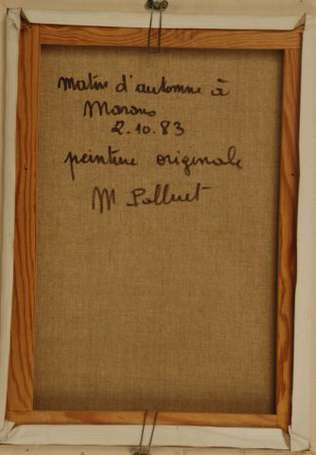 Matin d'automne à
Marans
2.10.83
peinture originale
M Polluet